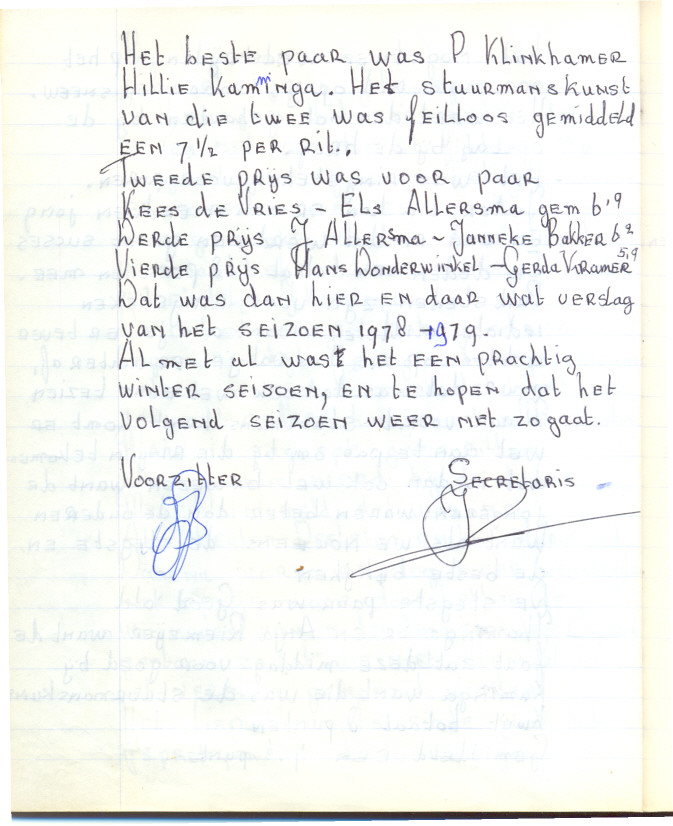 Het beste paar was P Klinkhamer
Hillie Kamminga. Het stuurmanskunst
van die twee was feilloos gemiddeld
een 7½ per rit.
Tweede prijs was voor paar
Kees de Vries - Els Allersma gem 6,9
Derde prijs J Allersma - Janneke Bakker 6²
Vierde prijs Hans Wonderwinkel - Gerda Kramer 5,9
Dat was dan hier en daar wat verslag
van het seizoen 1978-1979.
Al met al was het een prachtig
winter seisoen, en te hopen dat het
volgend seizoen weer net zo gaat.
Voorzitter Secretaris